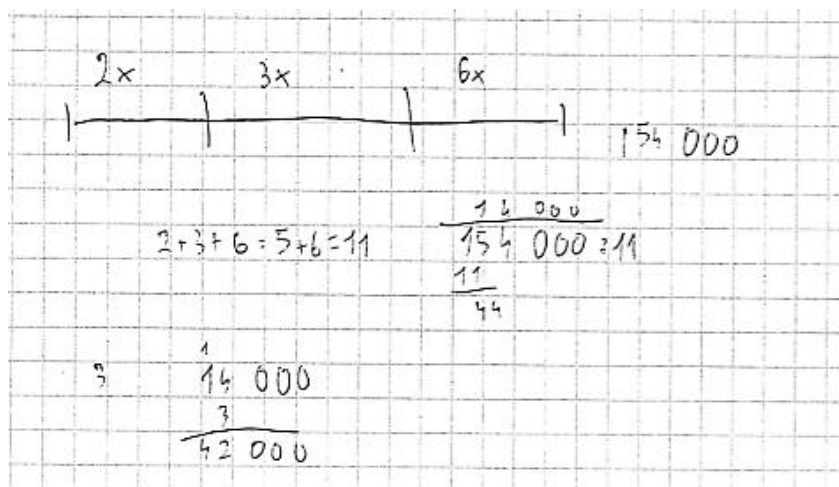 2x 3x 6x
154 000
2+3+6=5+6=11
14 000
154 000:11
11
44
1
3 14 000
3
42 000